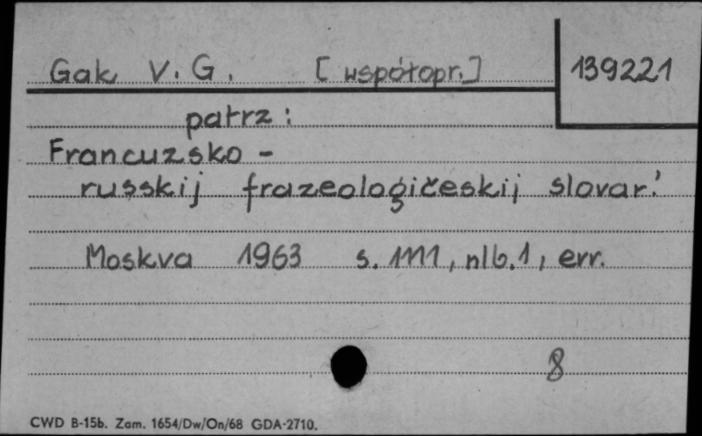 Gak V. G. [współopr.] 139221
patrz:
Francuzsko-
russkij frazeologičeskij slovar'
Moskva 1963 s. 1111, nlb. 1, err.
8
CWD B-15b. Zam. 1654/Dw/On/68 GDA-2710.